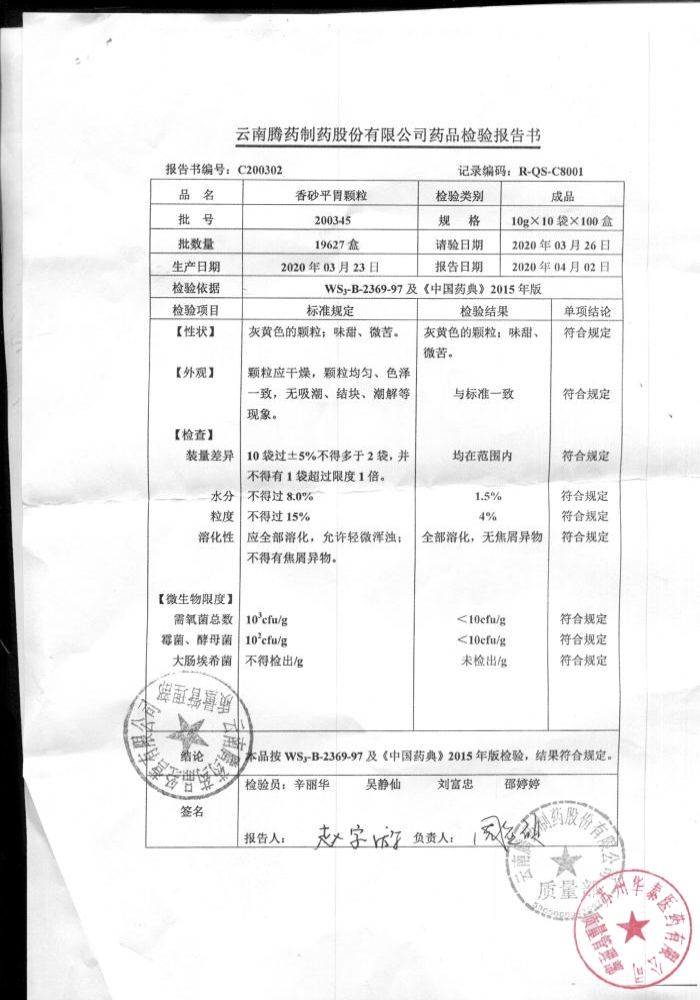 云南腾药制药股份有限公司药品检验报告书
报告书编号：C200302 记录编码：R-QS-C8001
品 名 香砂平胃颗粒 检验类别 成品
批 号 200345 规 格 10g×10 袋×100 盒
批数量 19627 盒 请验日期 2020 年 03 月 26 日
生产日期 2020 年 03 月 23 日 报告日期 2020 年 04 月 02 日
检验依据 WS₃-B-2369-97 及《中国药典》2015 年版
检验项目 标准规定 检验结果 单项结论
【性状】 灰黄色的颗粒；味甜、微苦。 灰黄色的颗粒；味甜、 符合规定
微苦。
【外观】 颗粒应干燥，颗粒均匀、色泽
一致，无吸潮、结块、潮解等 与标准一致 符合规定
现象。
【检查】
装量差异 10 袋过±5%不得多于 2 袋，并 均在范围内 符合规定
不得有 1 袋超过限度 1 倍。
水分 不得过 8.0% 1.5% 符合规定
粒度 不得过 15% 4% 符合规定
溶化性 应全部溶化，允许轻微浑浊； 全部溶化，无焦屑异物 符合规定
不得有焦屑异物。
【微生物限度】
需氧菌总数 10³cfu/g ＜10cfu/g 符合规定
霉菌、酵母菌 10²cfu/g ＜10cfu/g 符合规定
大肠埃希菌 不得检出/g 未检出/g 符合规定
质量管理部
结论 本品按 WS₃-B-2369-97 及《中国药典》2015 年版检验，结果符合规定。
检验员：辛丽华 吴静仙 刘富忠 邵婷婷
签名
报告人： 负责人：
云南腾药制药股份有限公司
质量部
州华泰医药有限公司